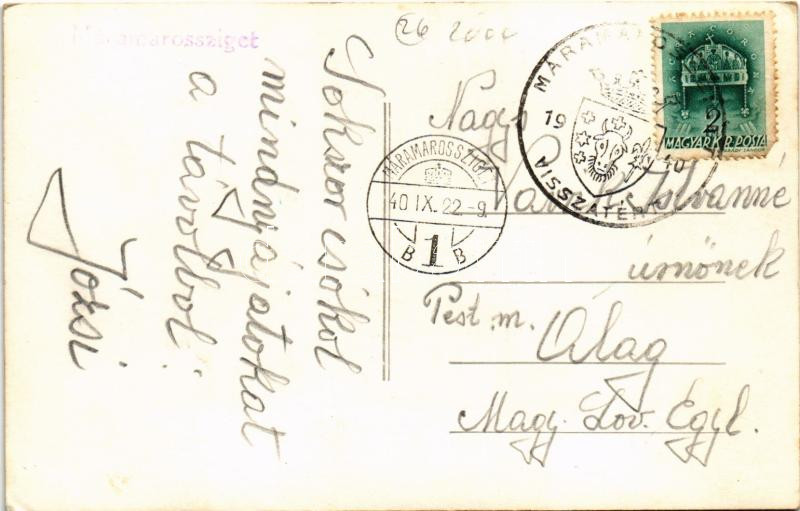 Máramarossziget
26 2000
Sokszor csókol
mindnyájatokat
a távolból
Józsi
MÁRAMAROSSZIGET
40 IX. 22 - 9
B 1 B
MÁRAMAROS
19 40
VISSZATÉRT
2
MAGYAR KIR. POSTA
Nagys
Istvánné
úrnőnek
Pest m. Alag
Magy. Lov. Egyl.